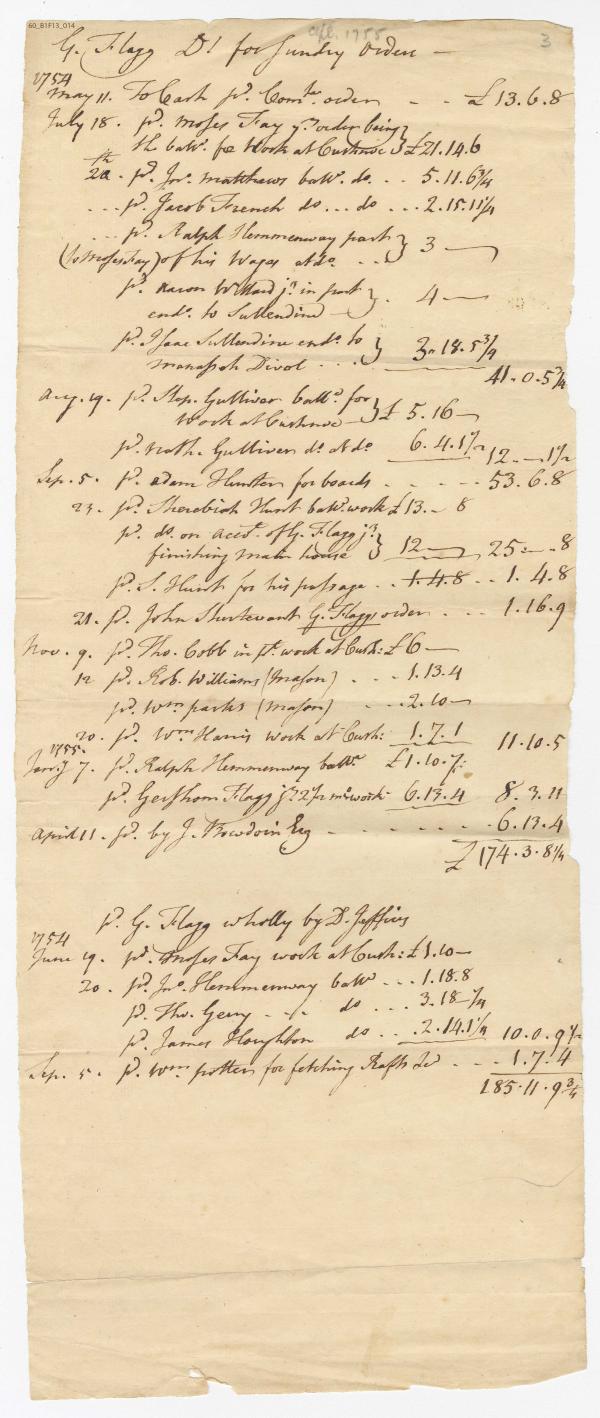 60_B1F13_014
apl. 1755
3
G. Flagg Dr for Sundry orders —
1754
May 11. To Cash pd. Comtee. order - - £ 13.6.8
July 18. pd. Moses Fay yr. order being
th ballc. for Work at Cushnoc } £21.14.6
20th - pd. Jno. Matthews ballc. do. - - 5.11.6 3/4
... pd. Jacob French do ... do ... 2.15.11 1/4
... pd. Ralph Hemmenway part
(to Moses Fay) of his Wages at do. .. } 3 —
pd. Aaron Willard jr. in part
endo. to Sullendine — } . 4 —
pd. Isaac Sullendine endo. to
Manassah Divol .... } 3.18.5 3/4
41.0.5 3/4
Aug. 19. pd. Step. Gulliver ballce. for
Work at Cushnoc — } £ 5.16 —
pd. Nath. Gulliver do. at do. 6.4.1 1/2 12.—.1 1/2
Sep. 5. pd. Adam Hunter for boards - - - - 53.6.8
23. pd. Sherebiah Hunt ballc. work £13.-8
pd. do. on acct. of G. Flagg jr.
finishing main house } 12 — 25.—.8
pd. S. Hunt for his passage .. 1.4.8 .. 1.4.8
21. pd. John Sturtevant G. Flaggs order ... 1.16.9
Nov. 9. pd. Tho. Cobb in pt. work at Cush: £6 —
12 pd. Rob. Williams (Mason) ... 1.13.4
pd. Wm parks (Mason) ... 2.10 —
20. pd. Wm Harris work at Cush: 1.7.1 11.10.5
1755.
Janry 7. pd. Ralph Hemmenway ballc. £1.10.7:
pd. Gershom Flagg jr. 2 1/2 mo. work 6.13.4 8.3.11
April 11. pd. by J. Bowdoin Esq - - - - - - 6.13.4
£ 174.3.8 1/4
pd. G. Flagg wholly by D. Jeffries
1754
June 19. pd. Moses Fay work at Cush: £1.10 —
20. pd. Jno. Hemmenway ballc ... 1.18.8
pd. Tho. Geary .... do ... 3.18 1/4
pd. James Houghton do ... 2.14.1 1/4 10.0.9 1/2
Sep. 5. pd. Wm. potter for fetching Rafts &c ... 1.7.4
185.11.9 3/4